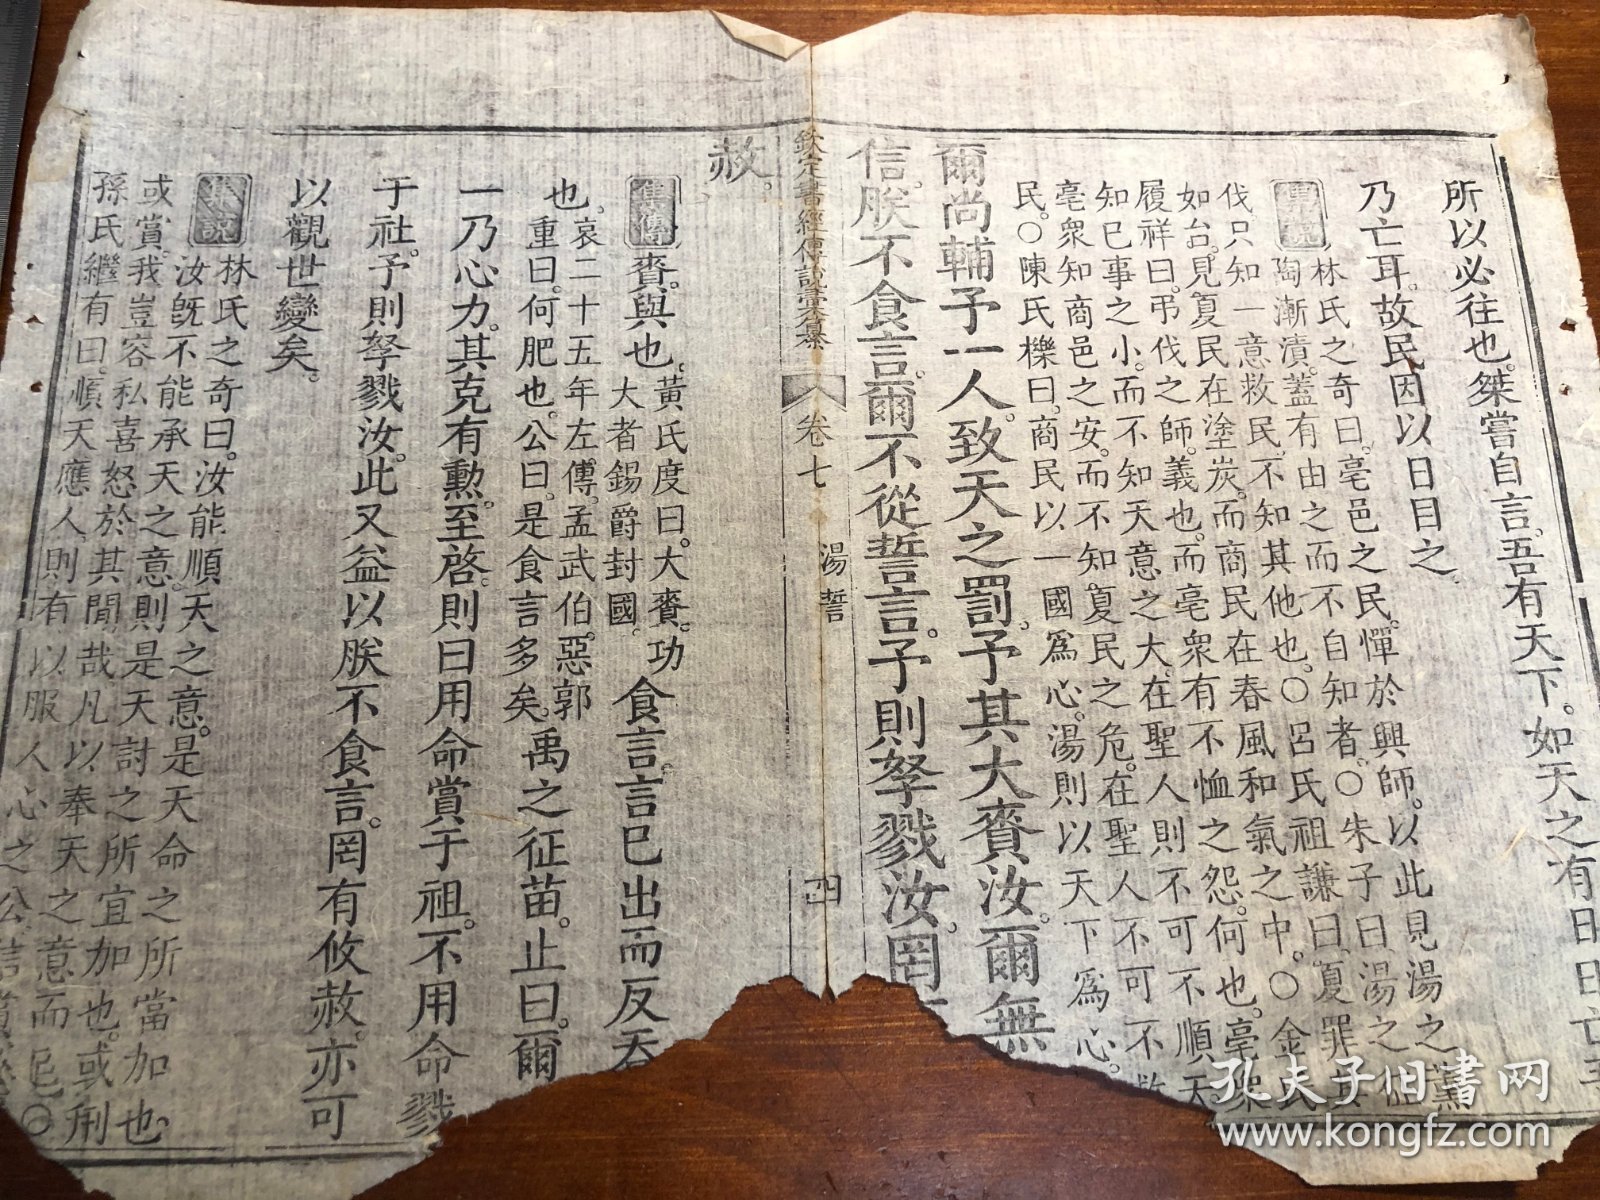 所以必往也。桀嘗自言。吾有天下。如天之有日。日亡吾
乃亡耳。故民因以日目之。
集說 林氏之奇曰。亳邑之民。憚於興師。以此見湯之薰
陶漸漬。蓋有由之而不自知者。○朱子曰。湯之征
伐只知一意救民。不知其他也。○呂氏祖謙曰。夏罪其
如台。見夏民在塗炭。而商民在春風和氣之中。○金氏
履祥曰。弔伐之師。義也。而亳衆有不恤之怨。何也。亳衆
知已事之小。而不知天意之大。在聖人則不可不順天
亳衆知商邑之安。而不知夏民之危。在聖人不可不救
民。○陳氏櫟曰。商民以一國爲心。湯則以天下爲心。
爾尚輔予一人。致天之罰。予其大賚汝。爾無
信。朕不食言。爾不從誓言。予則孥戮汝。罔
欽定書經傳說彙纂 卷七 湯誓 四
赦。
集傳 賚。與也。黃氏度曰。大賚。功大者錫爵封國。食言。言已出而反吞
也。哀二十五年左傳。孟武伯惡郭重曰。何肥也。公曰。是食言多矣。禹之征苗。止曰。爾
一乃心力。其克有勳。至啓。則曰用命賞于祖。不用命戮
于社。予則孥戮汝。此又益以朕不食言。罔有攸赦。亦可
以觀世變矣。
集說 林氏之奇曰。汝能順天之意。是天命之所當加也。
汝旣不能承天之意。則是天討之所宜加也。或刑
或賞。我豈容私喜怒於其閒哉。凡以奉天之意而已。○
孫氏繼有曰。順天應人。則有以服人心之公。信賞
孔夫子旧書网
www.kongfz.com